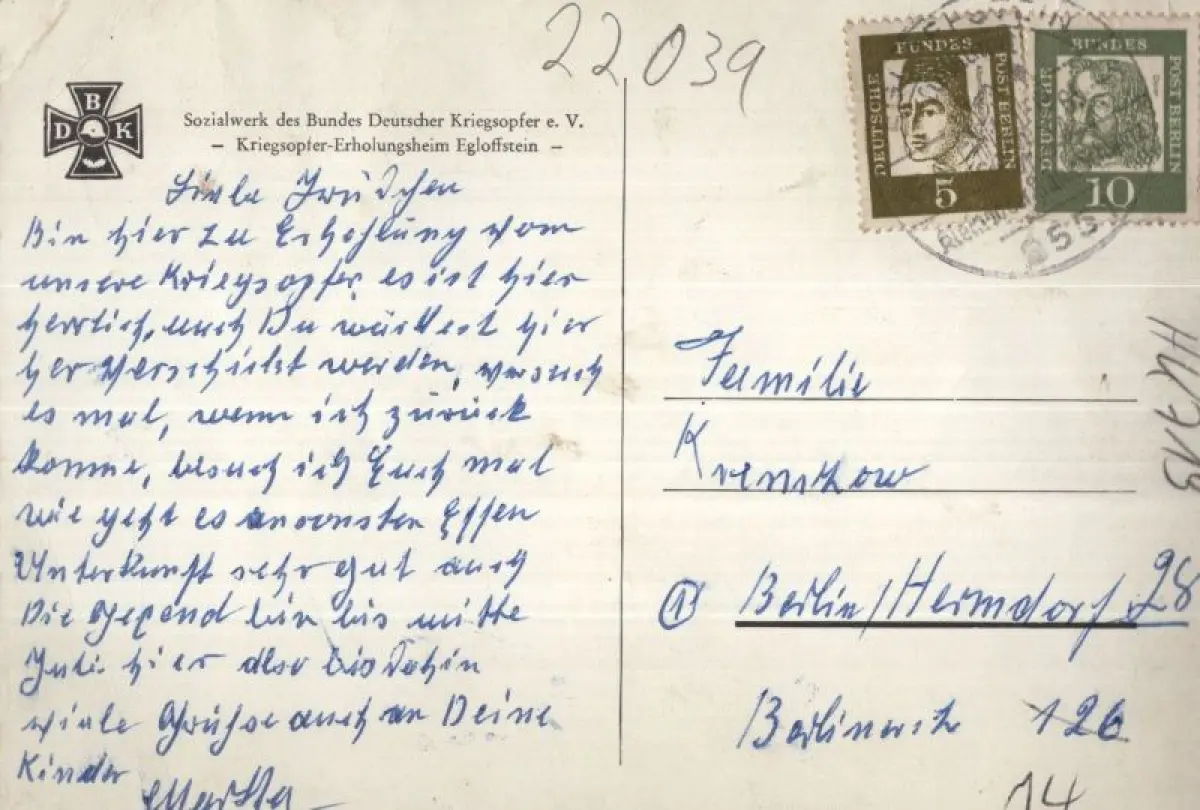 22039
B
D K
Sozialwerk des Bundes Deutscher Kriegsopfer e. V.
— Kriegsopfer-Erholungsheim Egloffstein —
Liebe Trudchen
Bin hier zu Erhohlung vom
unsere Kriegsopfer, es ist hier
herrlich, auch Du würdest hier
her verschickt werden, versuch
es mal, wenn ich zurück
komme, besuch ich Euch mal
wie geht es ansonsten Essen
Unterkunft sehr gut auch
Die Gegend bin bis mitte
Juli hier also bis dahin
viele Grühse auch an Deine
Kinder
Martha
DEUTSCHE BUNDES POST BERLIN
5
DEUTSCHE BUNDES POST BERLIN
10
855
Familie
Krenskow
① Berlin/Hermdorf 28
Berlinerstr 126
14